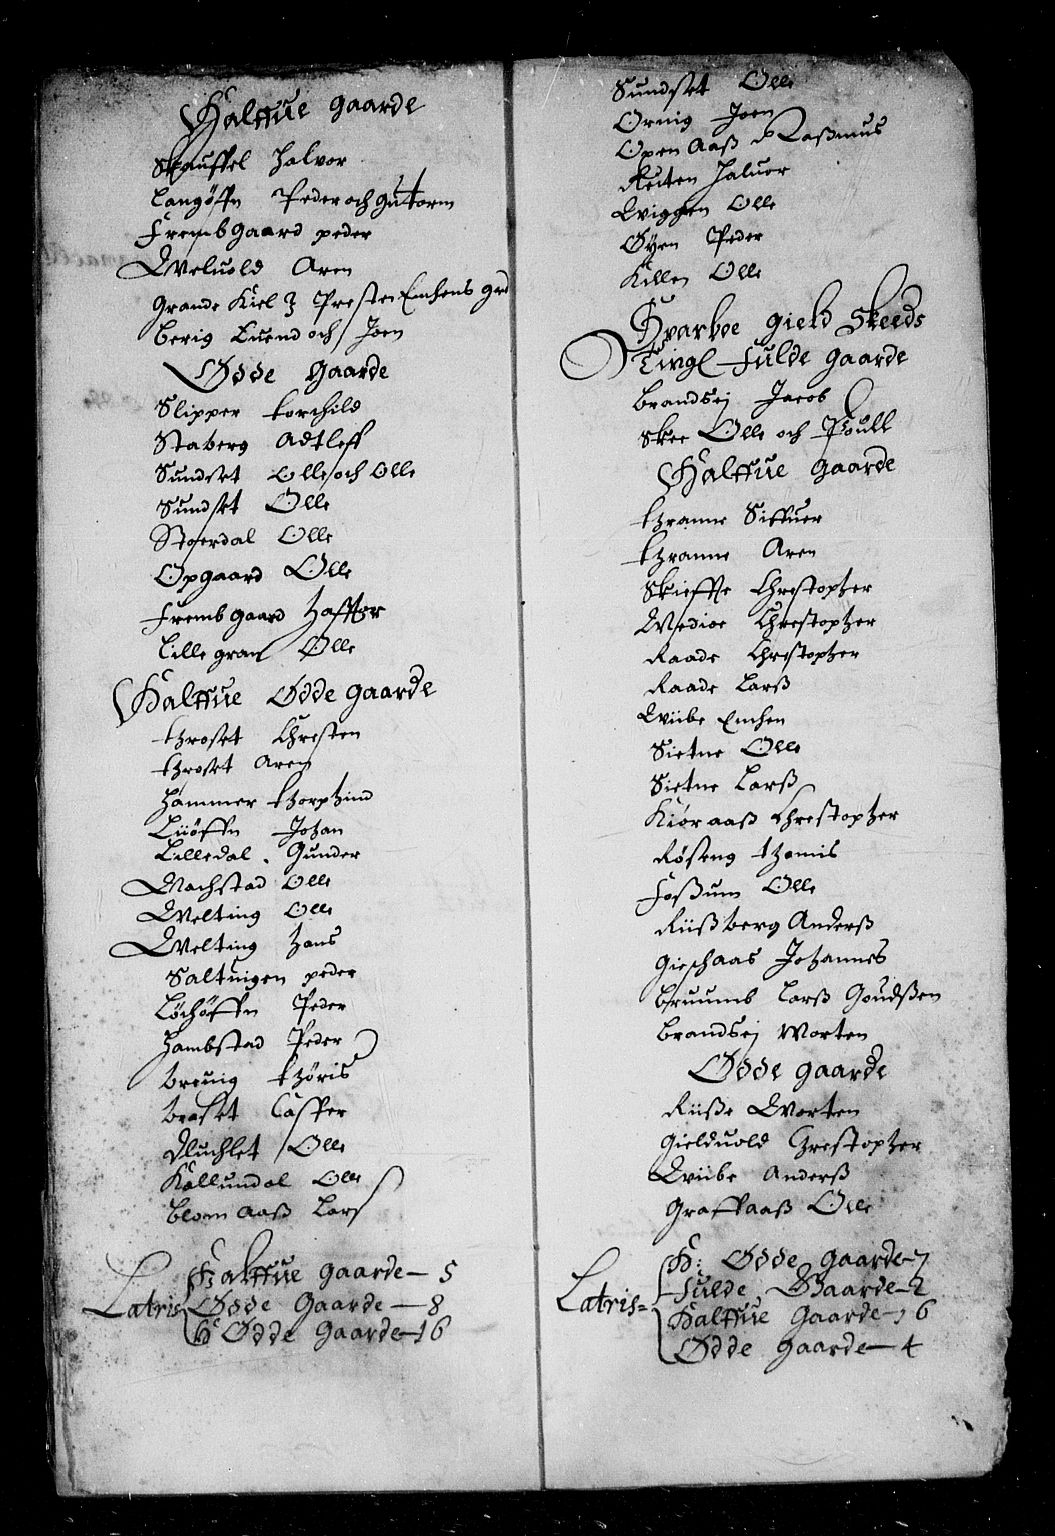 Halffue gaarde
Skauffel Halvor
Langøffn Peder och guttorm
Frembgaard peder
Weluold Aren
Grande Kiel Presten Emhens grd
berig Euend och Joen
Ødde gaarde
Slipper torchild
Staberg Adtleff
Sundset Olle och Olle
Sundset Olle
Stoerdal Olle
Opgaard Olle
Fremb gaard Hafftor
Lille gran Olle
Halffue Ødde gaarde
throset Chresten
throset Aren
Hammer thorphind
Liiøffn Johan
Lilledal Gunder
Wachstad Olle
Welting Olle
Welting Hans
Saltuigen peder
Løchøffn Peder
Hambstad Peder
breuig thøris
braset Casper
Olle
Kallundal Olle
bloem aaß Lars
Latris
Halffue gaarde - 5
Ødde Gaarde - 8
H Ødde gaarde - 16
Sundset Olle
Ornig Joen
Open Aaß Raßmus
Reiten Haluor
Quiggen Olle
Øyen Peder
Killen Olle
Sparboe gield Skeeds
Tingl Fulde gaarde
brandsej Jacob
Skee Olle och Poull
Halffue gaarde
thranne Siffuer
thranne Aren
Skieffte Chrestopher
Wedioe Chrestopher
Raade Chrestopher
Raade Larß
Quiibe Emhen
Sietne Olle
Sietne Larß
Kiøraaß Chrestopher
Røseng thomis
Foßum Olle
Riißberg Anderß
Gieschaas Johannes
bruumb Larß Goudßen
brandsej Morten
Ødde gaarde
Riiße Morten
Gielduold Chrestopher
Quiibe Anderß
Graffaaß Olle
Latris =
H: Ødde gaarde - 7
Fulde Gaarde - 2
Halffue Gaarde - 16
Ødde gaarde - 4